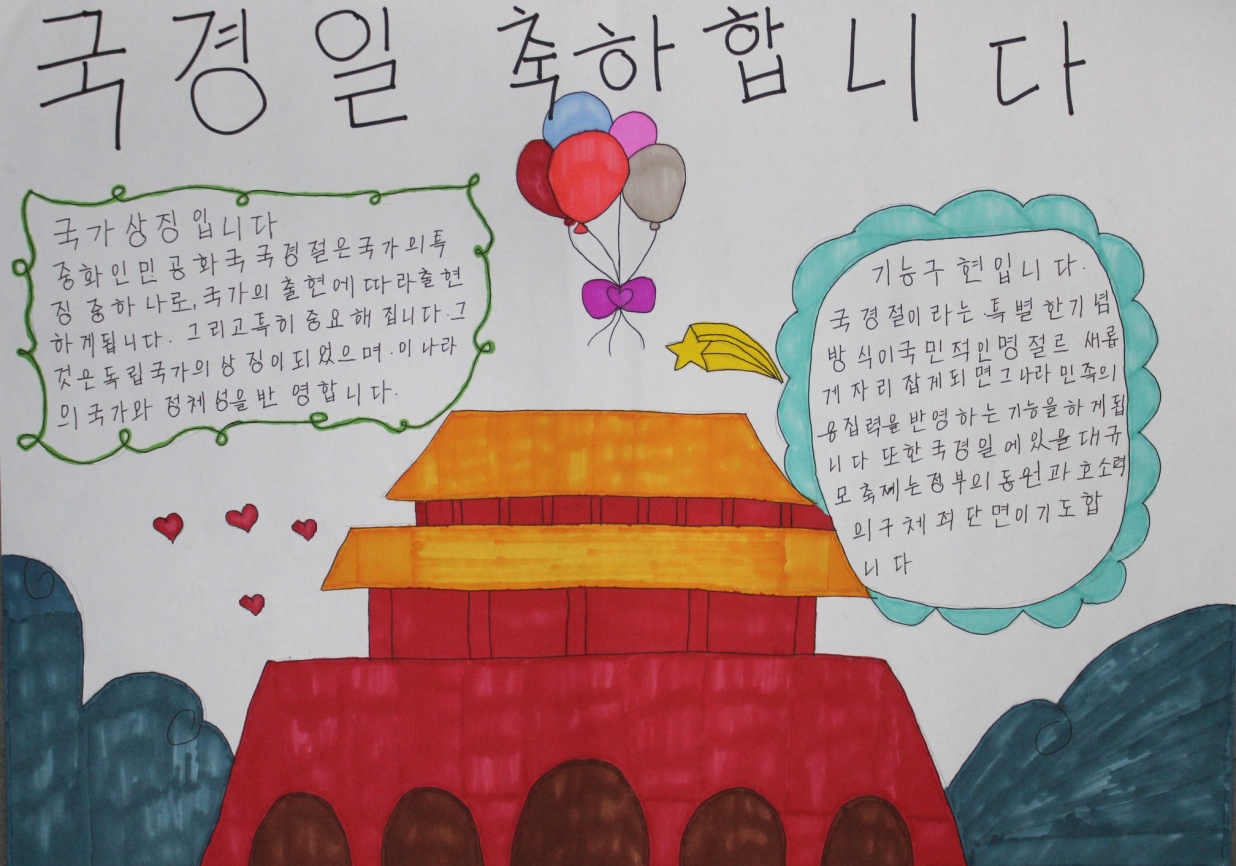 국경일 축하합니다
국가상징입니다
중화인민공화국국경절은국가의특
징중하나로,국가의출현에따라출현
하게됩니다. 그리고특히중요해집니다.그
것은독립국가의상징이되었으며.이나라
의국가와정체성을반영합니다.
기능구현입니다.
국경절이라는특별한기념
방식이국민적인명절르 새롭
게자리잡게되면그나라민족의
응집력을반영하는기능을하게됩
니다 또한국경일에있을대규
모축제는정부의동원과호소력
의구체적단면이기도합
니다